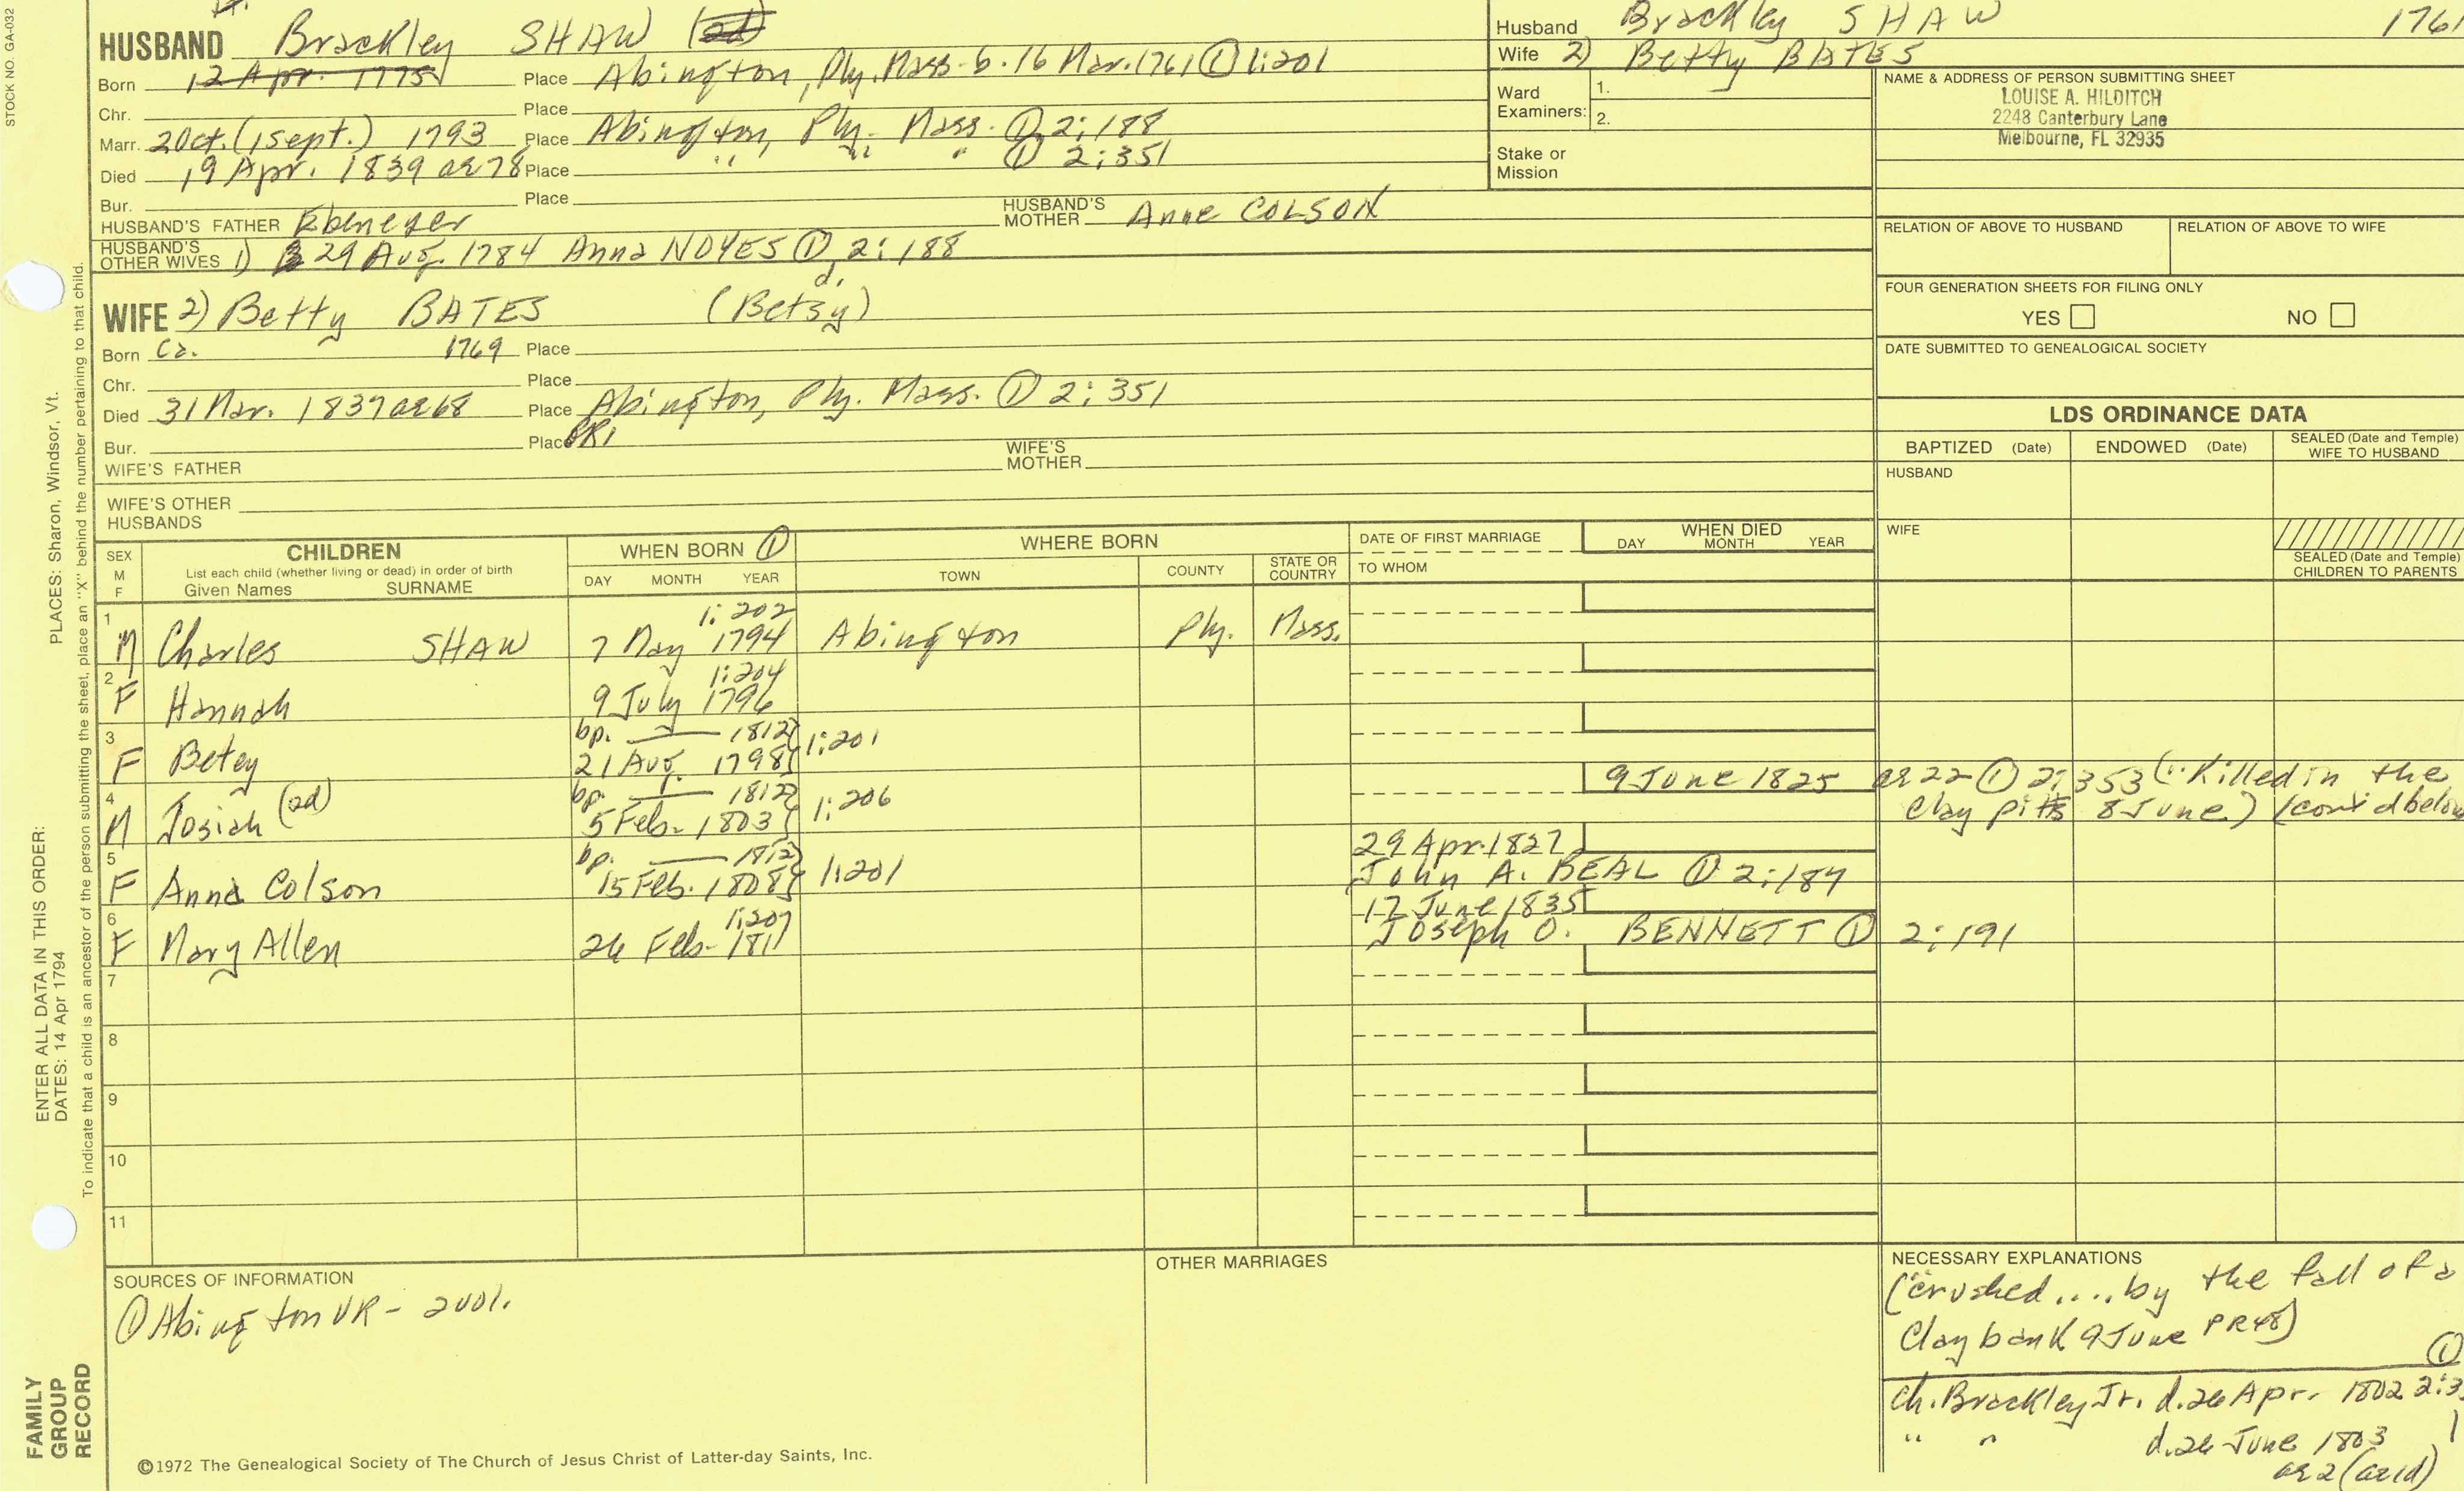 STOCK NO. GA-032
HUSBAND Brackley SHAW (2d)
Born 12 Apr. 1775 Place Abington, Ply. Mass - b. 16 Mar. 1761 ① 1:201
Chr. Place
Marr. 2 Oct. (1 Sept.) 1793 Place Abington, Ply. Mass. ① 2:188
Died 19 Apr. 1839 ae 78 Place " " " ① 2:351
Bur. Place
HUSBAND'S FATHER Ebenezer HUSBAND'S MOTHER Anne COLSON
HUSBAND'S OTHER WIVES 1) 29 Aug. 1784 Anna NOYES ① 2:188
d.
WIFE 2) Betty BATES (Betsy)
Born Ca. 1769 Place
Chr. Place
Died 31 Mar. 1837 ae 68 Place Abington, Ply. Mass. ① 2:351
Bur. Place PR1
WIFE'S FATHER WIFE'S MOTHER
WIFE'S OTHER HUSBANDS
Husband Brackley SHAW 1761
Wife 2) Betty BATES
Ward Examiners: 1.
2.
Stake or Mission
NAME & ADDRESS OF PERSON SUBMITTING SHEET
LOUISE A. HILDITCH
2248 Canterbury Lane
Melbourne, FL 32935
RELATION OF ABOVE TO HUSBAND RELATION OF ABOVE TO WIFE
FOUR GENERATION SHEETS FOR FILING ONLY
YES NO
DATE SUBMITTED TO GENEALOGICAL SOCIETY
LDS ORDINANCE DATA
BAPTIZED (Date) ENDOWED (Date) SEALED (Date and Temple) WIFE TO HUSBAND
HUSBAND
WIFE
SEALED (Date and Temple) CHILDREN TO PARENTS
SEX M F CHILDREN
List each child (whether living or dead) in order of birth
Given Names SURNAME
WHEN BORN ①
DAY MONTH YEAR
WHERE BORN
TOWN COUNTY STATE OR COUNTRY
DATE OF FIRST MARRIAGE
TO WHOM
WHEN DIED
DAY MONTH YEAR
1:202
1 M Charles SHAW 7 May 1794 Abington Ply. Mass.
1:204
2 F Hannah 9 July 1796
bp. — 1812
3 F Betsy 21 Aug. 1798 1:201
bp. — 1812
4 M Josiah (2d) 5 Feb. 1803 1:206 9 June 1825 ae 22 ① 2:353 ("Killed in the
clay pitts 8 June") (cont'd below
bp. — 1812 29 Apr. 1827
5 F Anna Colson 15 Feb. 1808 1:201 John A. BEAL ① 2:184
1:207 17 June 1835
6 F Mary Allen 26 Feb. 1811 Joseph O. BENNETT ① 2:191
7
8
9
10
11
SOURCES OF INFORMATION
① Abington VR - 2 vol.
OTHER MARRIAGES
NECESSARY EXPLANATIONS
("crushed .... by the fall of a
Clay bank 9 June PR48)
①
Ch. Brackley Jr. d. 26 Apr. 1802
" " d. 26 June 1803
ae 2
©1972 The Genealogical Society of The Church of Jesus Christ of Latter-day Saints, Inc.
FAMILY GROUP RECORD
ENTER ALL DATA IN THIS ORDER:
DATES: 14 Apr 1794
PLACES: Sharon, Windsor, Vt.
To indicate that a child is an ancestor of the person submitting the sheet, place an "X" behind the number pertaining to that child.